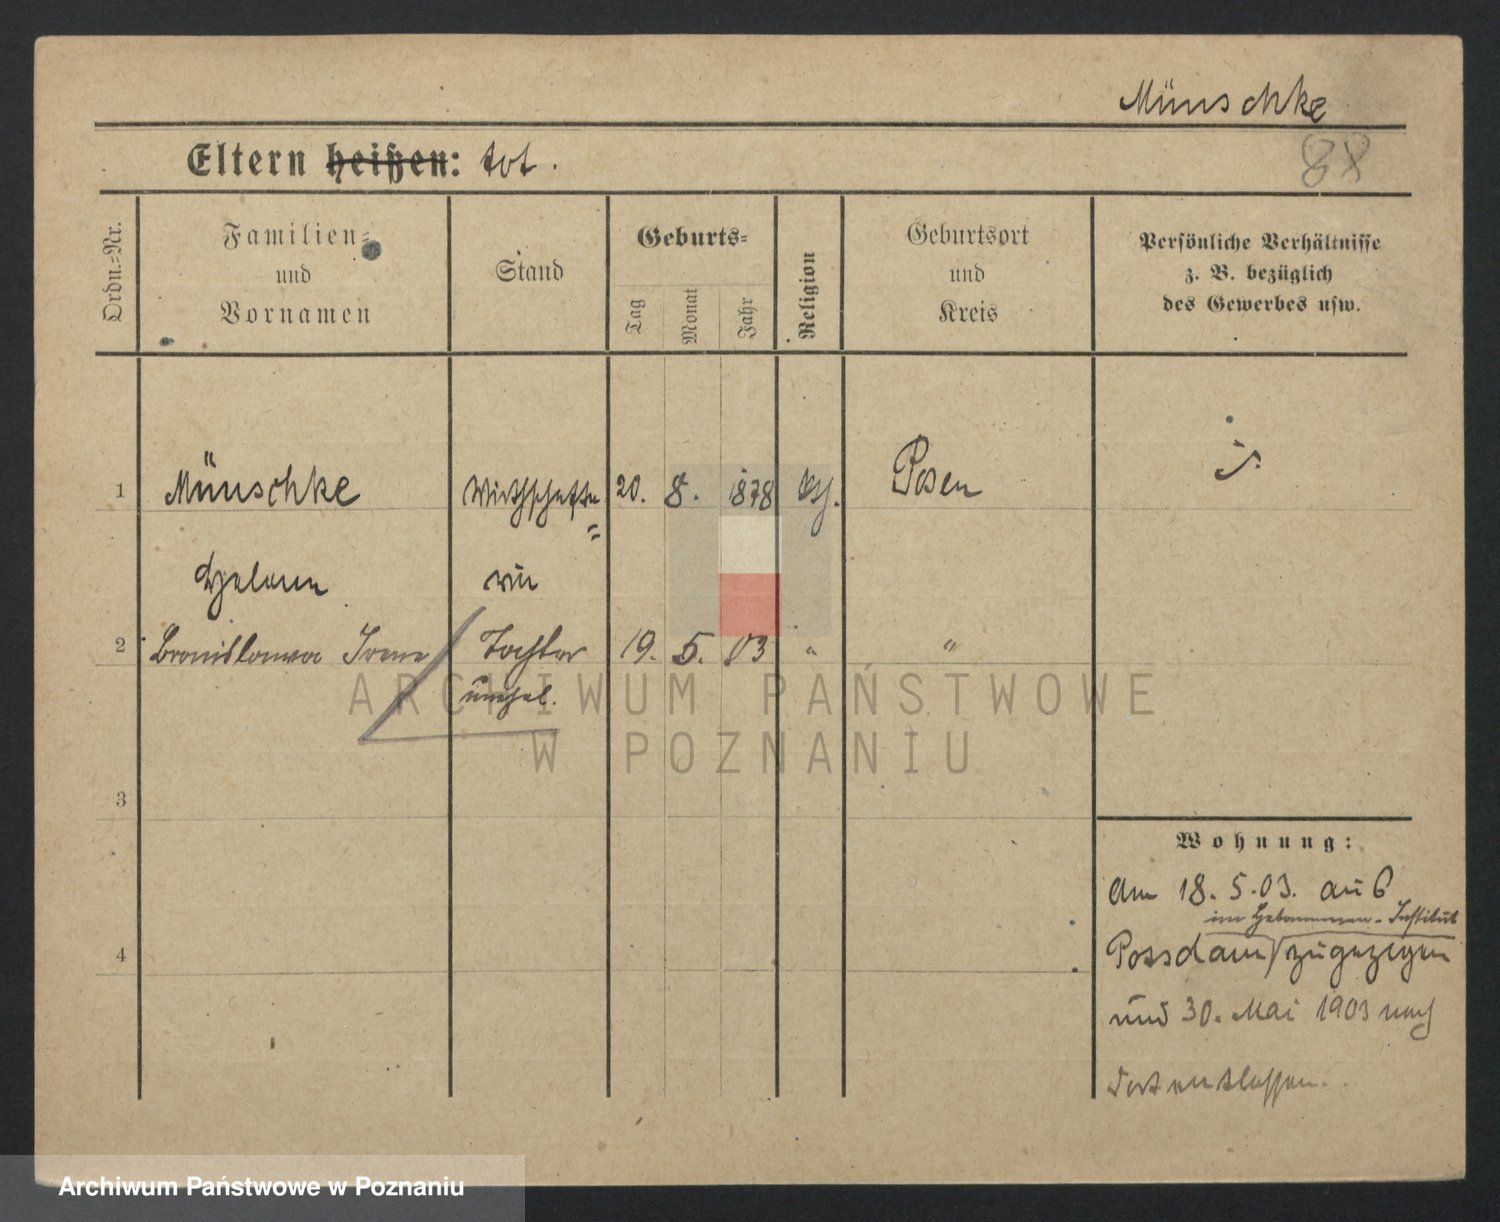 Münschke
Eltern heißen: tot.
88
Ordn.-Nr.
Familien-
und
Vornamen
Stand
Geburts-
Tag
Monat
Jahr
Religion
Geburtsort
und
Kreis
Persönliche Verhältnisse
z. B. bezüglich
des Gewerbes usw.
1 Münschke Wirthschafte 20. 8. 1878 kth. Posen
=
Helene rin
2 Bronislawa Irene Tochter 19. 5. 03 " "
unehel.
ARCHIWUM PAŃSTWOWE
W POZNANIU
3
Wohnung:
Am 18. 5. 03. aus
im Hebammen-Institut
Possdam zugezogen
4
und 30. Mai 1903 nach
dort entlassen.
Archiwum Państwowe w Poznaniu